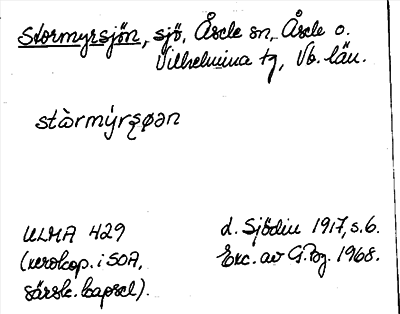 Stormyrsjön, sjö, Åsele sn, Åsele o.
Vilhelmina tg, Vb. län.
stàrmý̡rʂøən
ULMA 429
(xerokop. i SOA,
särsk. kapsel).
d. Sjödin 1917, s. 6.
Exc. av G. Pg. 1968.